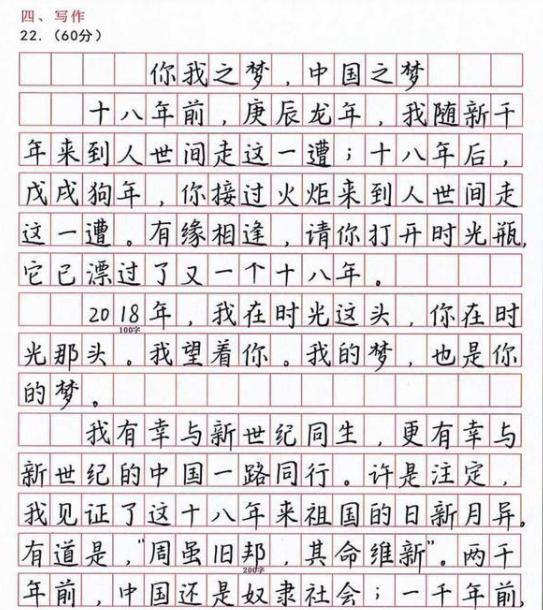 四、写作
22.（60分）
你我之梦，中国之梦
十八年前，庚辰龙年，我随新千
年来到人世间走这一遭；十八年后，
戊戌狗年，你接过火炬来到人世间走
这一遭。有缘相逢，请你打开时光瓶，
它已漂过了又一个十八年。
2018年，我在时光这头，你在时
100字
光那头。我望着你。我的梦，也是你
的梦。
我有幸与新世纪同生，更有幸与
新世纪的中国一路同行。许是注定，
我见证了这十八年来祖国的日新月异。
有道是，“周虽旧邦，其命维新”。两千
200字
年前，中国还是奴隶社会；一千年前，